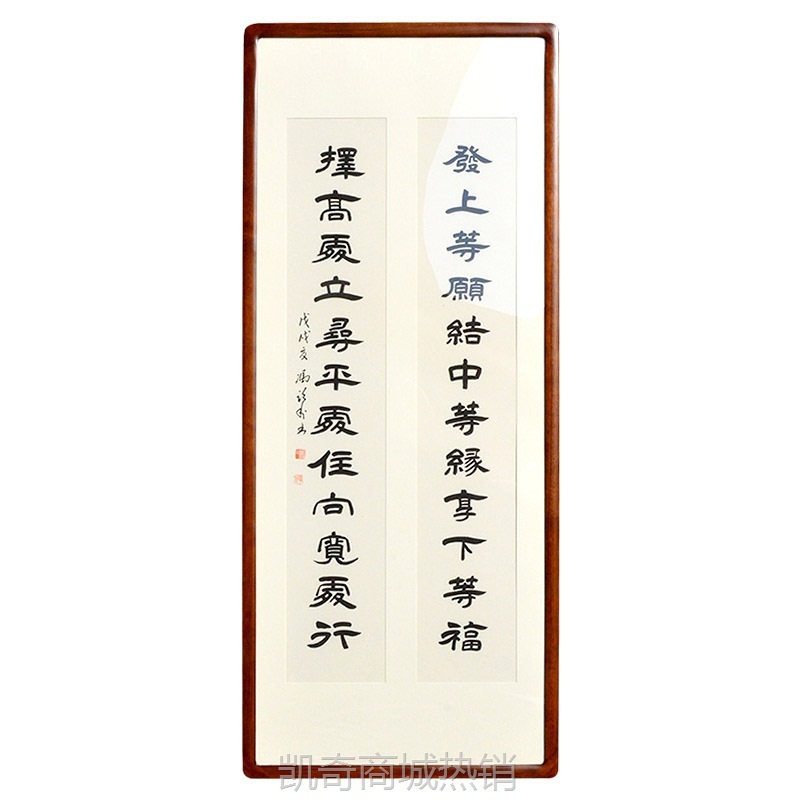 發上等願結中等緣享下等福
擇高處立尋平處住向寬處行
戊戌夏馮
凯奇商城热销